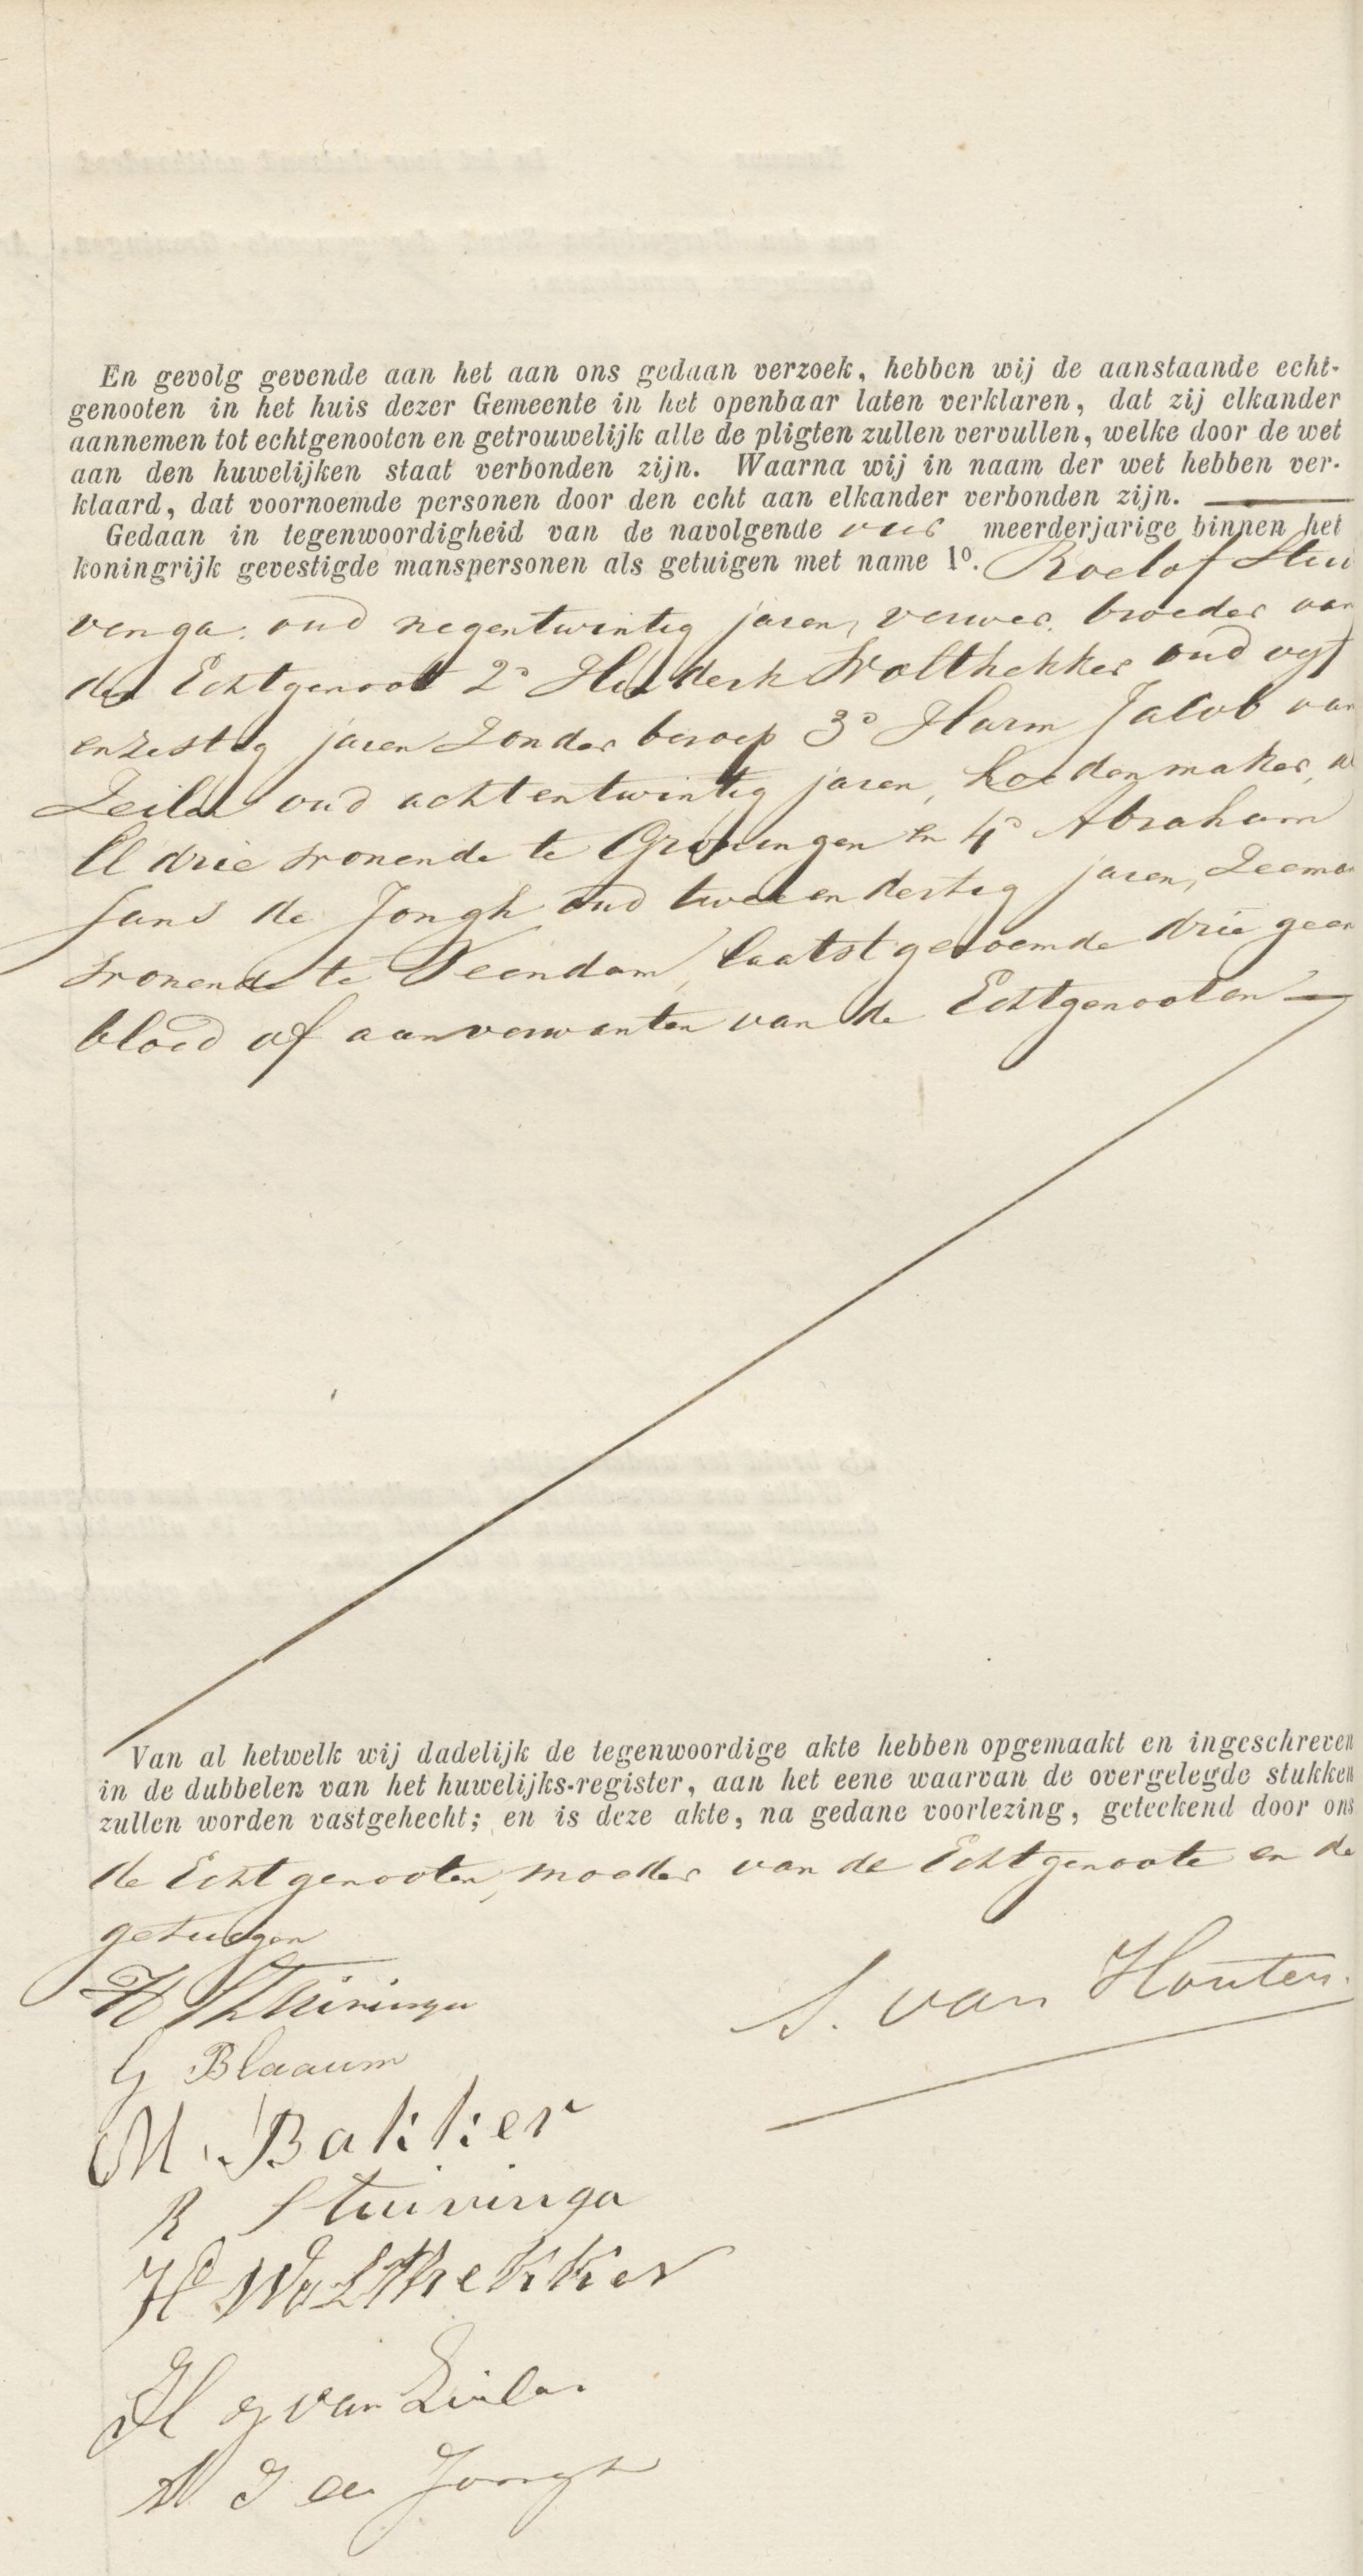 En gevolg gevende aan het aan ons gedaan verzoek, hebben wij de aanstaande echt-
genooten in het huis dezer Gemeente in het openbaar laten verklaren, dat zij elkander
aannemen tot echtgenooten en getrouwelijk alle de pligten zullen vervullen, welke door de wet
aan den huwelijken staat verbonden zijn. Waarna wij in naam der wet hebben ver-
klaard, dat voornoemde personen door den echt aan elkander verbonden zijn.
Gedaan in tegenwoordigheid van de navolgende vier meerderjarige binnen het
koningrijk gevestigde manspersonen als getuigen met name 1º. Roelof Stui
venga oud negentwintig jaren, verwer, broeder van
den Echtgenoot 2º Hinderk Wolthekker oud vijf
enzestig jaren zonder beroep 3º Harm Jacob van
Zeilen oud achtentwintig jaren, hoedenmaker, al
le drie wonende te Groningen en 4º Abraham
Jans de Jongh oud tweeendertig jaren, Zeeman
wonende te Veendam, laatstgenoemde drie geen
bloed of aanverwanten van de Echtgenooten
Van al hetwelk wij dadelijk de tegenwoordige akte hebben opgemaakt en ingeschreven
in de dubbelen van het huwelijks-register, aan het eene waarvan de overgelegde stukken
zullen worden vastgehecht; en is deze akte, na gedane voorlezing, geteekend door ons
de Echtgenooten, moeder van de Echtgenoote en de
getuigen
H Stuivinga
S. van Houten.
G Blaauw
M. Bakker
R Stuivinga
H Wolthekker
H J van Zeilen
A J de Jongh